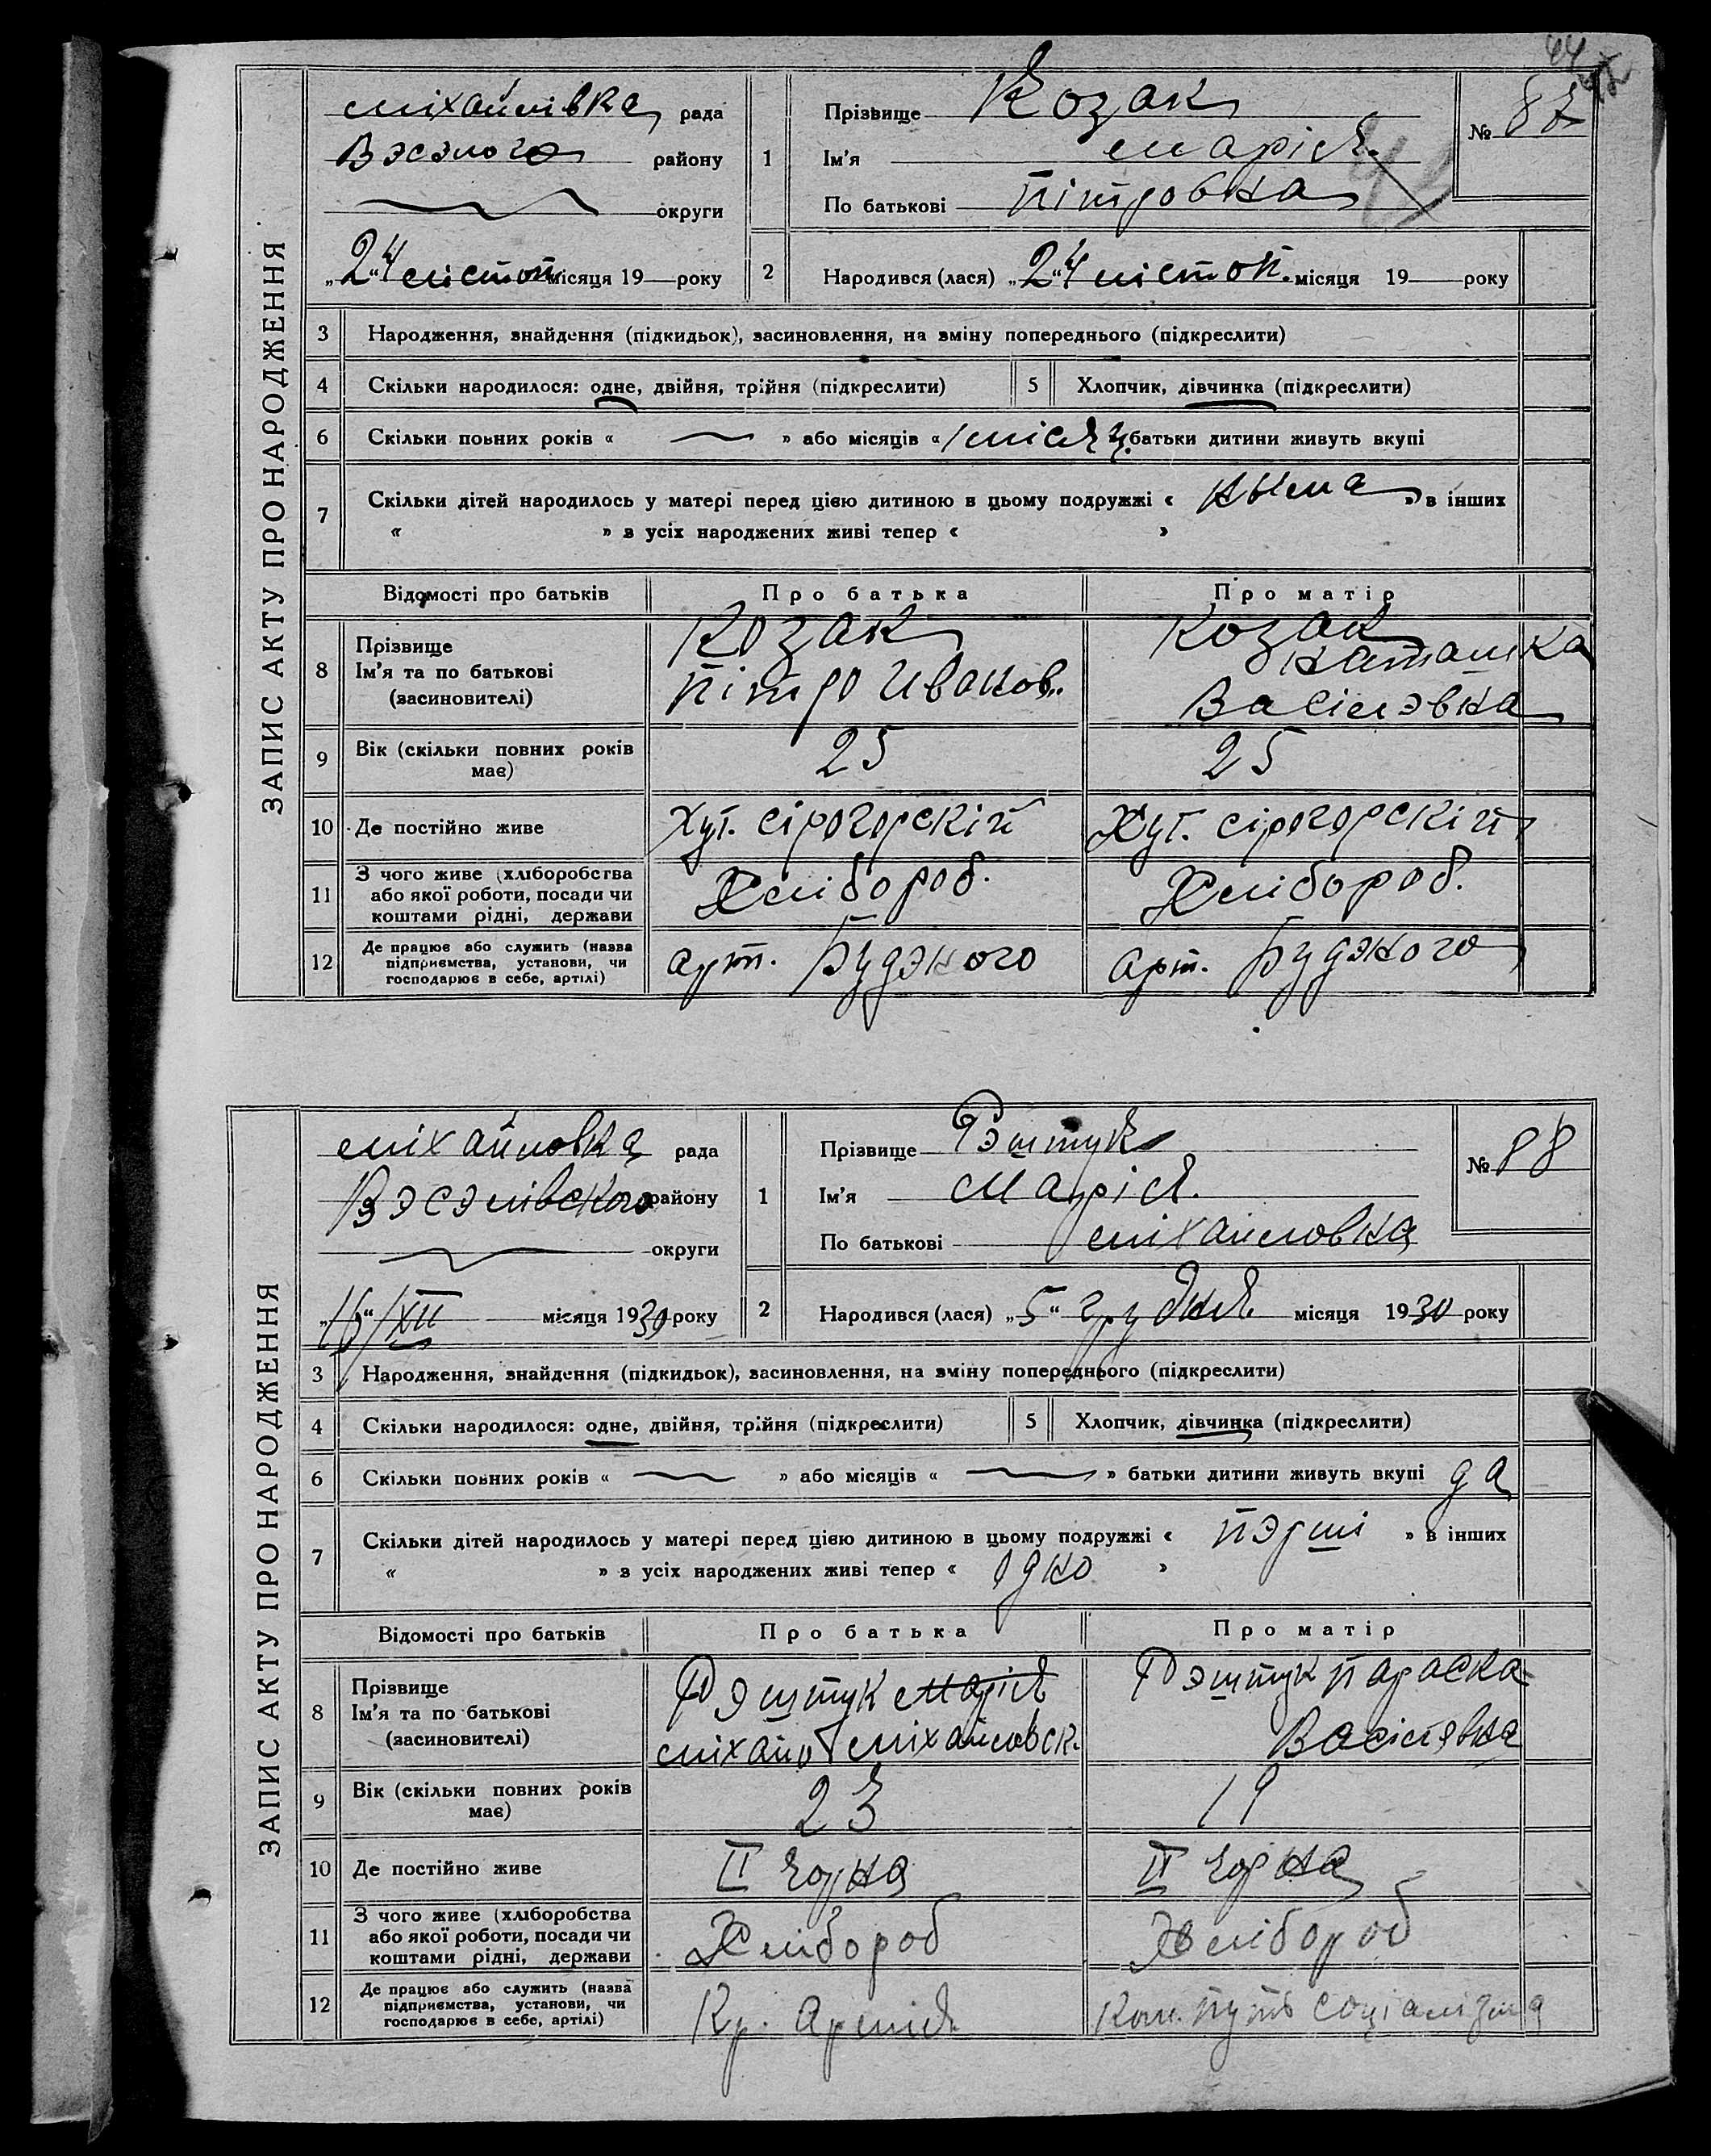 44
ЗАПИС АКТУ ПРО НАРОДЖЕННЯ
міхайлівка рада
Вэсэлого району
округи
„24“ лістоп місяця 19 року
1
Прізвище Козак
Ім'я марія.
По батькові пітровна
№ 87
2
Народився (лася) „24“ лістоп. місяця 19 року
3 Народження, знайдення (підкидьок), засиновлення, на зміну попереднього (підкреслити)
4 Скільки народилося: одне, двійня, трійня (підкреслити)
5 Хлопчик, дівчинка (підкреслити)
6 Скільки повних років « » або місяців « 1 місяц. батьки дитини живуть вкупі
7 Скільки дітей народилось у матері перед цією дитиною в цьому подружжі « ныма » в інших
« » з усіх народжених живі тепер « »
Відомості про батьків Про батька Про матір
8 Прізвище
Ім'я та по батькові
(засиновителі)
Козак
пітро Иванов..
Козак
наташка
Васілэвна
9 Вік (скільки повних років
має)
25
25
10 Де постійно живе
Хут. сірогорскій
Хут. сірогорскій
11 З чого живе (хліборобства
або якої роботи, посади чи
коштами рідні, держави
Хлібороб.
Хлібороб.
12 Де працює або служить (назва
підприємства, установи, чи
господарює в себе, артілі)
арт. Будэного
арт. Будэного
ЗАПИС АКТУ ПРО НАРОДЖЕННЯ
міхайловка рада
Вэсэлівского району
округи
„16“/XII місяця 1930 року
1
Прізвище Рэштук
Ім'я Марія.
По батькові міхайловна
№ 88
2
Народився (лася) „5“ грудня. місяця 1930 року
3 Народження, знайдення (підкидьок), засиновлення, на зміну попереднього (підкреслити)
4 Скільки народилося: одне, двійня, трійня (підкреслити)
5 Хлопчик, дівчинка (підкреслити)
6 Скільки повних років « » або місяців « » батьки дитини живуть вкупі да
7 Скільки дітей народилось у матері перед цією дитиною в цьому подружжі « пэрші » в інших
« » з усіх народжених живі тепер « одно »
Відомості про батьків Про батька Про матір
8 Прізвище
Ім'я та по батькові
(засиновителі)
Рэштук Марія
міхайло міхайловск.
Рэштук параска
Васілэвна
9 Вік (скільки повних років
має)
23
19
10 Де постійно живе
II чорна
II чорна
11 З чого живе (хліборобства
або якої роботи, посади чи
коштами рідні, держави
Хлібороб
Хлібороб
12 Де працює або служить (назва
підприємства, установи, чи
господарює в себе, артілі)
Кр. Армія
Кол. путь соціалізма